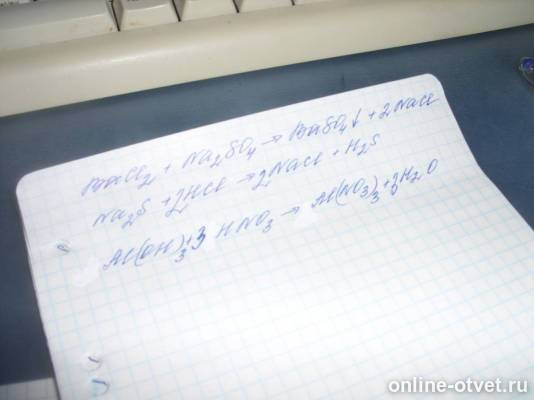 BaCl₂ + Na₂SO₄ → BaSO₄↓ + 2NaCl
Na₂S + 2HCl → 2NaCl + H₂S
Al(OH)₃ + 3 HNO₃ → Al(NO₃)₃ + 3H₂O
online-otvet.ru